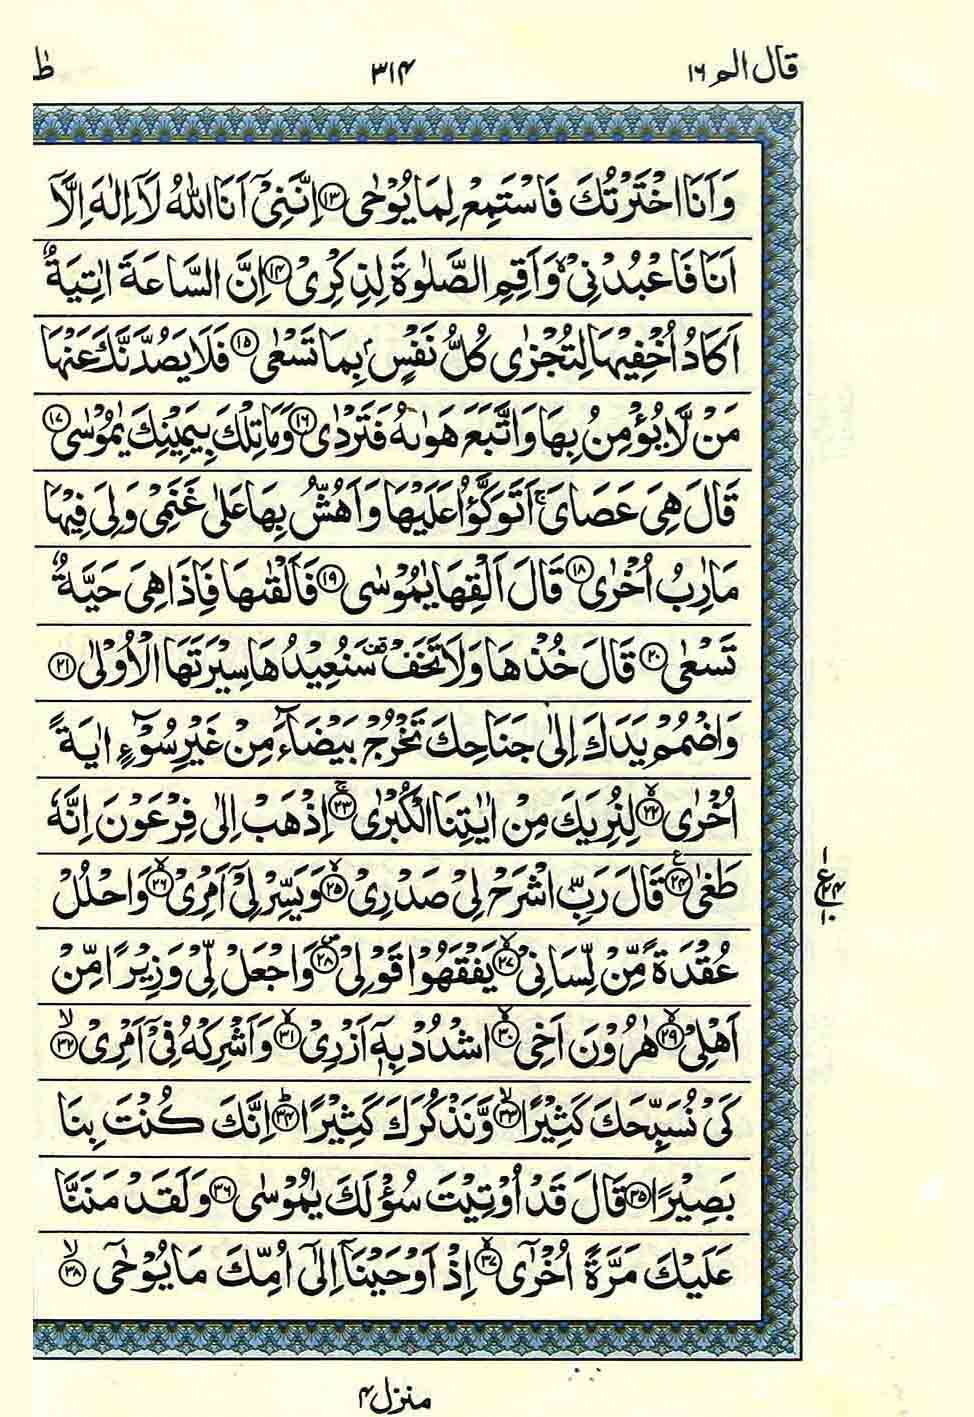 قال الم ١٦ ٣١٤ طٰ
وَاَنَا اخْتَرْتُكَ فَاسْتَمِعْ لِمَا يُوْحٰى ﴿۱۳﴾ اِنَّنِيْۤ اَنَا اللّٰهُ لَاۤ اِلٰهَ اِلَّاۤ
اَنَا فَاعْبُدْنِيْ ۙ وَاَقِمِ الصَّلٰوةَ لِذِكْرِيْ ﴿۱۴﴾ اِنَّ السَّاعَةَ اٰتِيَةٌ
اَكَادُ اُخْفِيْهَا لِتُجْزٰى كُلُّ نَفْسٍۭ بِمَا تَسْعٰى ﴿۱۵﴾ فَلَا يَصُدَّنَّكَ عَنْهَا
مَنْ لَّا يُؤْمِنُ بِهَا وَاتَّبَعَ هَوٰىهُ فَتَرْدٰى ﴿۱۶﴾ وَمَا تِلْكَ بِيَمِيْنِكَ يٰمُوْسٰى ﴿۱۷﴾
قَالَ هِيَ عَصَايَ ۚ اَتَوَكَّؤُا عَلَيْهَا وَاَهُشُّ بِهَا عَلٰى غَنَمِيْ وَلِيَ فِيْهَا
مَاٰرِبُ اُخْرٰى ﴿۱۸﴾ قَالَ اَلْقِهَا يٰمُوْسٰى ﴿۱۹﴾ فَاَلْقٰىهَا فَاِذَا هِيَ حَيَّةٌ
تَسْعٰى ﴿۲۰﴾ قَالَ خُذْهَا وَلَا تَخَفْ ۥ سَنُعِيْدُهَا سِيْرَتَهَا الْاُوْلٰى ﴿۲۱﴾
وَاضْمُمْ يَدَكَ اِلٰى جَنَاحِكَ تَخْرُجْ بَيْضَآءَ مِنْ غَيْرِ سُوْٓءٍ اٰيَةً
اُخْرٰى ﴿۲۲﴾ۙ لِنُرِيَكَ مِنْ اٰيٰتِنَا الْكُبْرٰى ﴿۲۳﴾ۚ اِذْهَبْ اِلٰى فِرْعَوْنَ اِنَّهٗ
طَغٰى ﴿۲۴﴾ قَالَ رَبِّ اشْرَحْ لِيْ صَدْرِيْ ﴿۲۵﴾ۙ وَيَسِّرْ لِيْۤ اَمْرِيْ ﴿۲۶﴾ۙ وَاحْلُلْ
عُقْدَةً مِّنْ لِّسَانِيْ ﴿۲۷﴾ۙ يَفْقَهُوْا قَوْلِيْ ﴿۲۸﴾ وَاجْعَلْ لِّيْ وَزِيْرًا مِّنْ
اَهْلِيْ ﴿۲۹﴾ۙ هٰرُوْنَ اَخِي ﴿۳۰﴾ۙ اشْدُدْ بِهٖۤ اَزْرِيْ ﴿۳۱﴾ۙ وَاَشْرِكْهُ فِيْۤ اَمْرِيْ ﴿۳۲﴾ۙ
كَيْ نُسَبِّحَكَ كَثِيْرًا ﴿۳۳﴾ۙ وَّنَذْكُرَكَ كَثِيْرًا ﴿۳۴﴾ؕ اِنَّكَ كُنْتَ بِنَا
بَصِيْرًا ﴿۳۵﴾ قَالَ قَدْ اُوْتِيْتَ سُؤْلَكَ يٰمُوْسٰى ﴿۳۶﴾ وَلَقَدْ مَنَنَّا
عَلَيْكَ مَرَّةً اُخْرٰۤى ﴿۳۷﴾ۙ اِذْ اَوْحَيْنَاۤ اِلٰۤى اُمِّكَ مَا يُوْحٰۤى ﴿۳۸﴾ۙ
منزل ۴